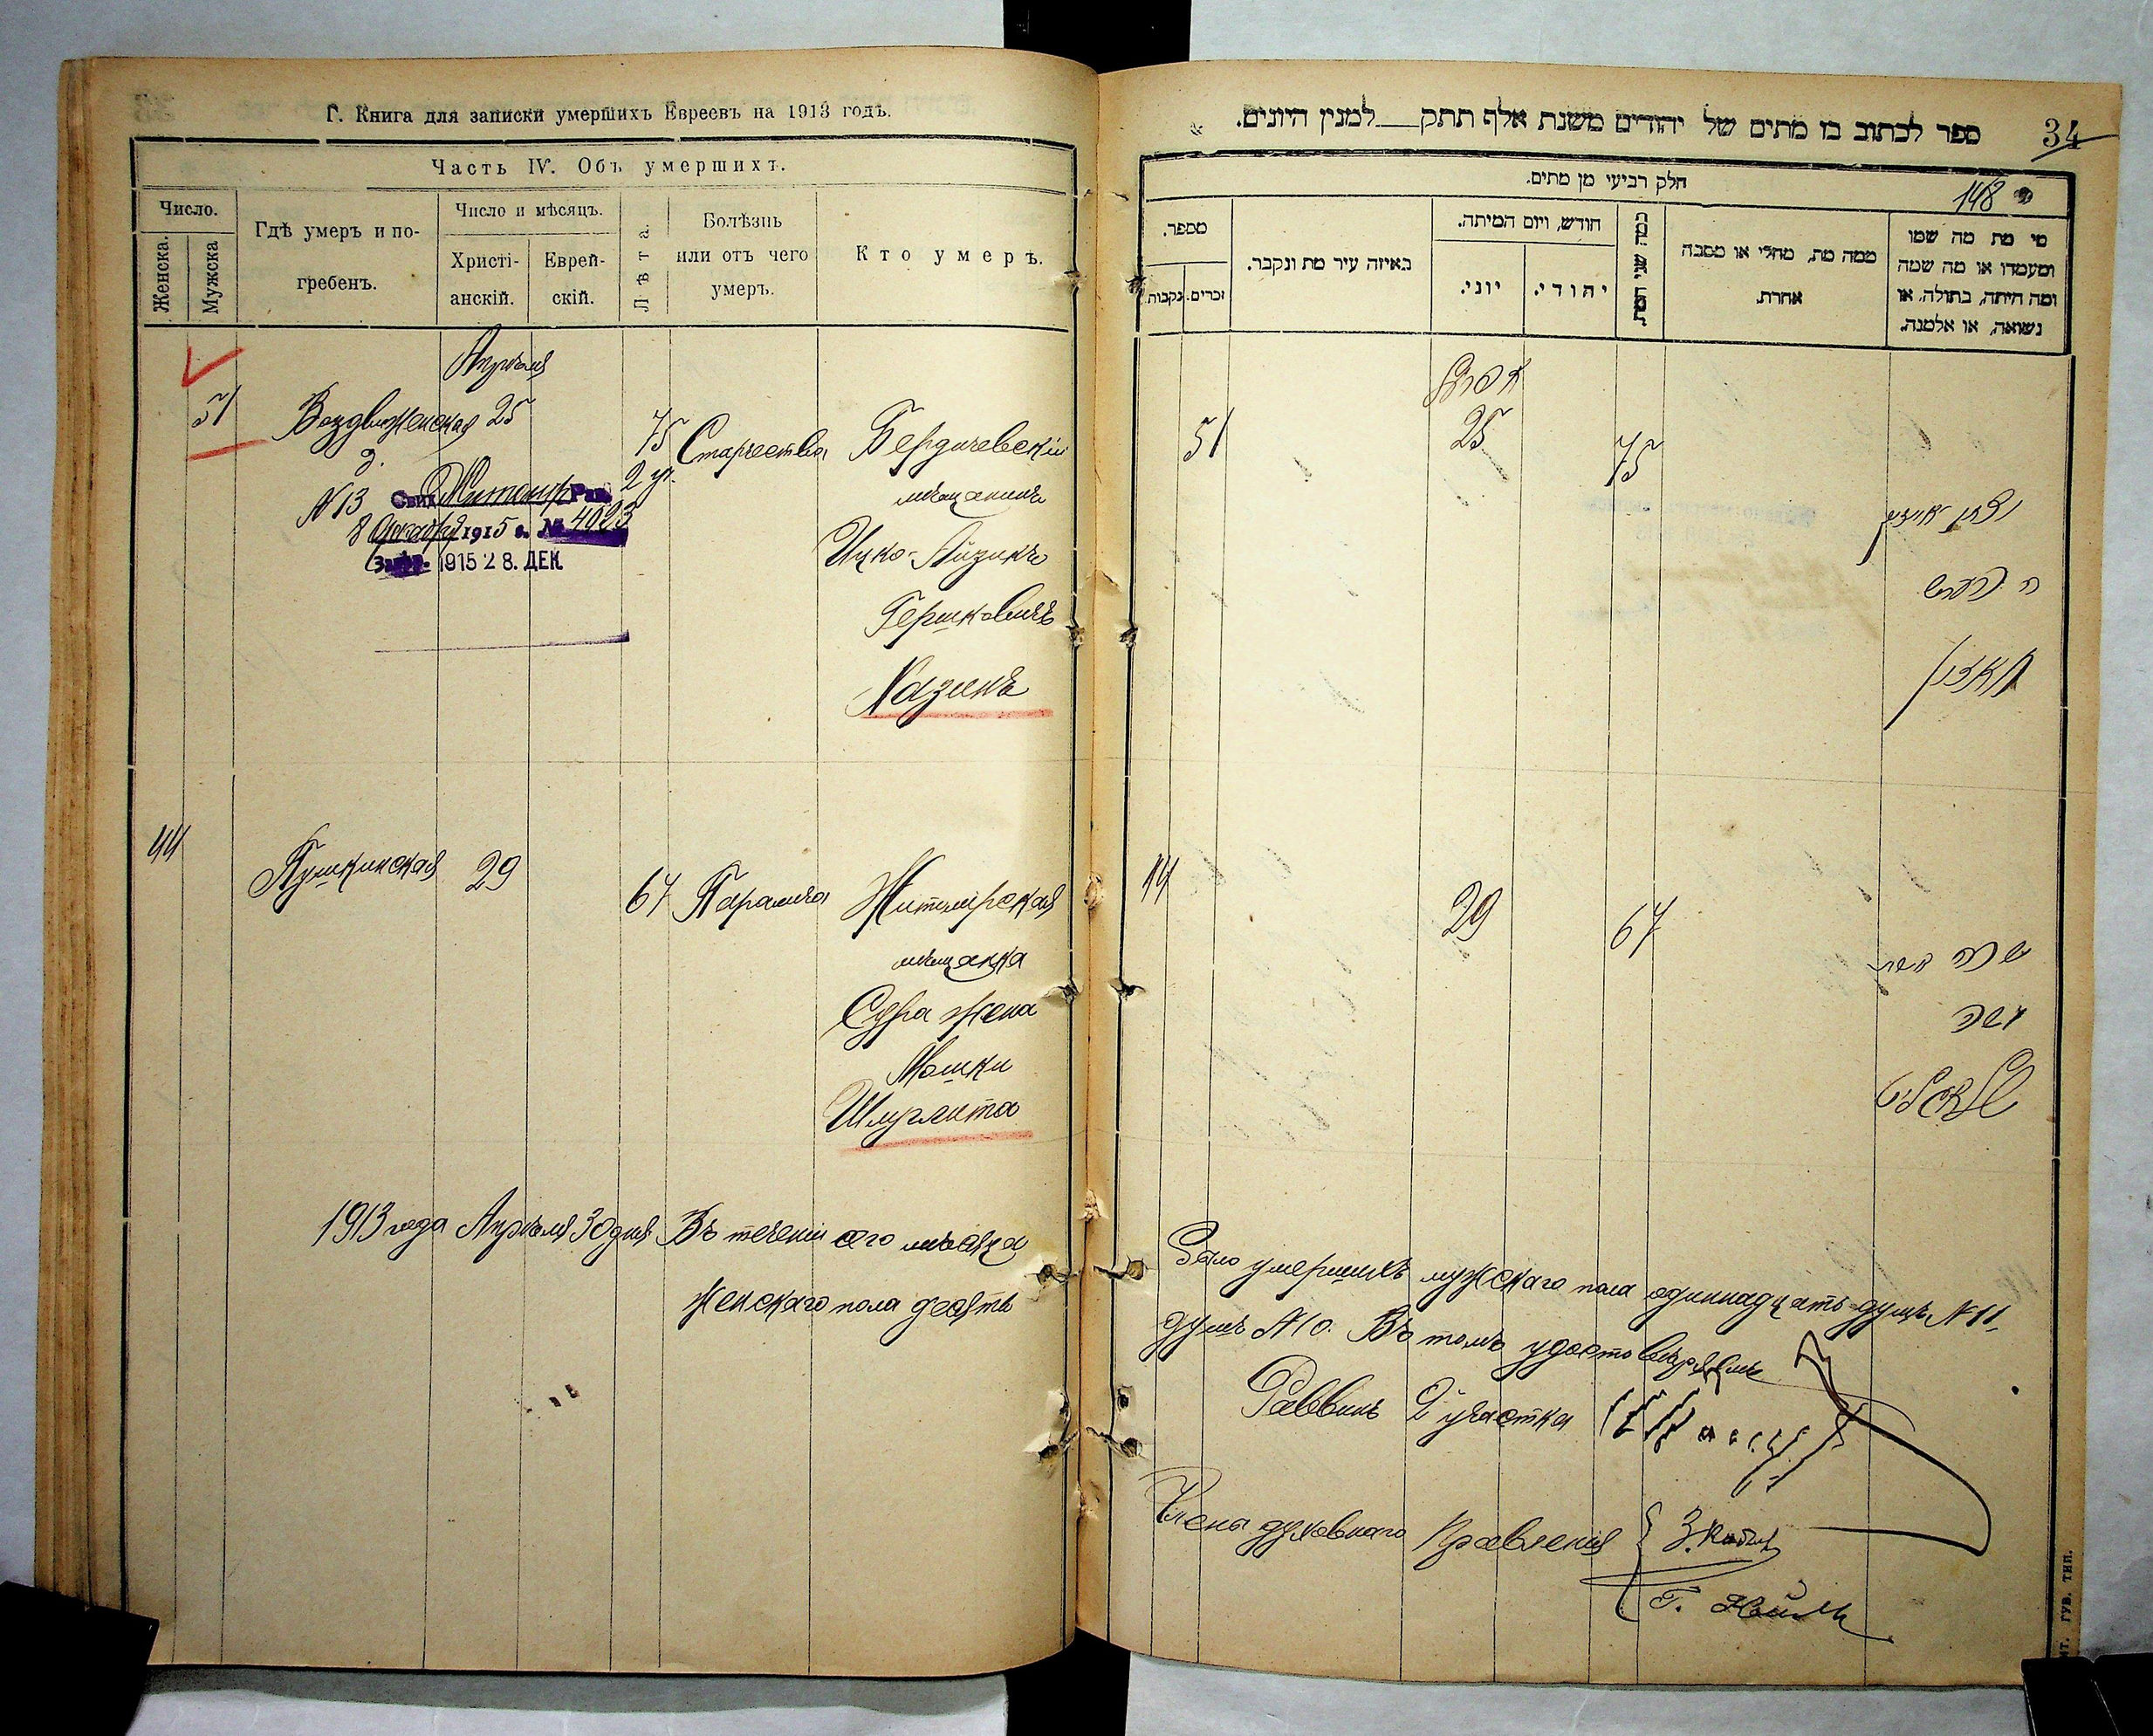 Г. Книга для записки умершихъ Евреевъ на 1913 годъ.
Часть IV. Объ умершихъ.
Число.
Женска.
Мужска
Гдѣ умеръ и по-
гребенъ.
Число и мѣсяцъ.
Христі-
анскій.
Еврей-
скій.
Лѣта.
Болѣзнь
или отъ чего
умеръ.
Кто умеръ.
Апрѣля
51 Воздвиженская 25 75 Старчества Бердичевскій
д.
N 13
мѣщанинъ
Ицко-Айзикъ
Гершковичъ
Хазинъ
2 уч.
Свид. Житомир. Рав.
8 Декабря 1915 г. № 4023
1915 28. ДЕК.
44 Пушкинская 29 67 Паралича Житомірская
мѣщанка
Сура жена
Мошки
1913 года Апрѣля 30 дня Въ теченіи сего мѣсяца
женскаго пола десять
34
ספר לכתוב בו מתים של יהודים משנת אלף תתק למנין היונים.
148
חלק רביעי מן מתים.
מספר.
נקבות.
זכרים.
באיזה עיר מת ונקבר.
חודש, ויום המיתה.
יוני.
יהודי.
כמה שני המת.
ממה מת, מחלי או מסבה
אחרת.
מי מת מה שמו
ומעמדו או מה שמה
ומה היתה, בתולה, או
נשואה, או אלמנה.
אפריל
51 25 75
יצחק אייזיק
ר הירש
חאזין
44 29 67
שרה אשת
משה
Было умершихъ мужскаго пола одиннадцать душъ N 11,
душъ N 10. Въ томъ удостовѣряемъ
Раввинъ 2 участка
Члены духовнаго Правленія
ГУБ. ТИП.